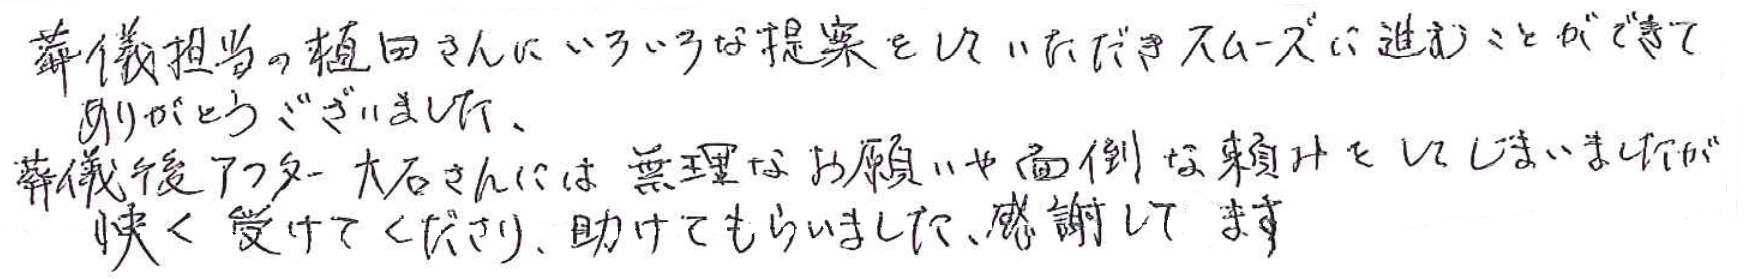 葬儀担当の植田さんにいろいろな提案をしていただきスムーズに進むことができて
ありがとうございました、
葬儀後アフター大石さんには無理なお願いや面倒な頼みをしてしまいましたが
快く受けてくださり、助けてもらいました、感謝してます